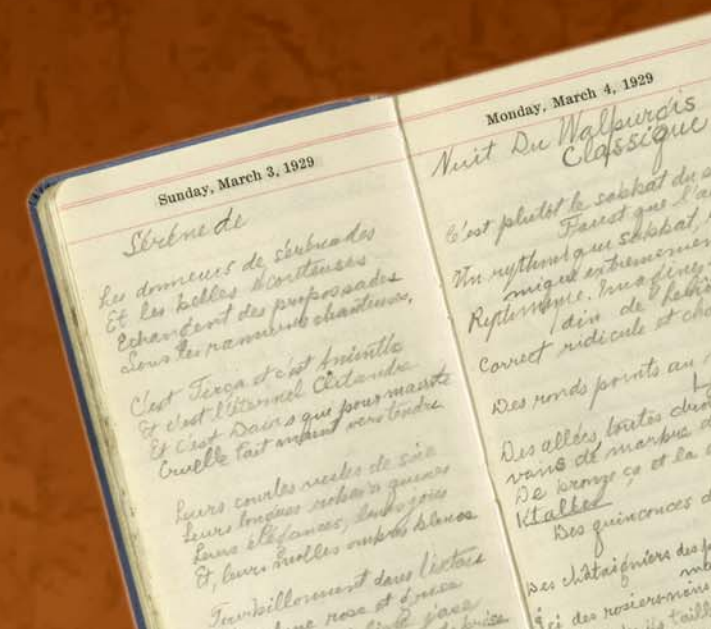 Sunday, March 3, 1929
Sérénede
Les donneurs de sérénades
Et les belles écouteuses
Echangent des propos sades
Sous les ramures chanteuses,
C'est Tirça et c'est Aminthe
Et c'est l'éternel Clitandre
Et c'est Damis qui pour mainte
Cruelle fait maint vers tendre
Leurs courtes vestes de soie
Leurs longues robes à queues
Leurs élégances, leurs joies
Et, leurs molles ombres bleues
Tourbillonnent dans l'extase
lune rose et grise
jase
brise
Monday, March 4, 1929
Nuit Du Walpurgis
Classique
C'est plutôt le sabbat du
Faust que l'a
Un rythmique sabbat,
mique extremement
Rythmique. Imaginez
din de
Correct ridicule et cha
Des ronds points au
Des allées toutes
vains de marbre
De bronze ça et là
Des quinconces d
Des châtaigniers des
Ici des rosiers nains
taill